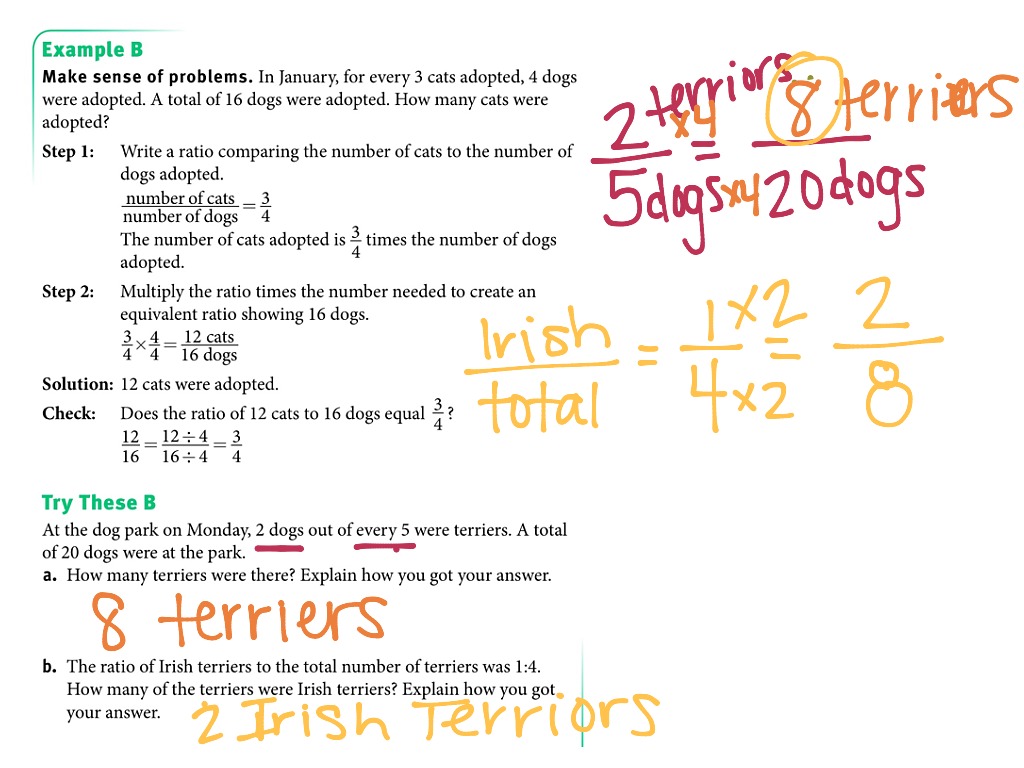 Example B
Make sense of problems. In January, for every 3 cats adopted, 4 dogs
were adopted. A total of 16 dogs were adopted. How many cats were
adopted?
Step 1: Write a ratio comparing the number of cats to the number of
dogs adopted.
number of cats / number of dogs = 3/4
The number of cats adopted is 3/4 times the number of dogs
adopted.
Step 2: Multiply the ratio times the number needed to create an
equivalent ratio showing 16 dogs.
3/4 × 4/4 = 12 cats / 16 dogs
Solution: 12 cats were adopted.
Check: Does the ratio of 12 cats to 16 dogs equal 3/4?
12/16 = 12 ÷ 4 / 16 ÷ 4 = 3/4
Try These B
At the dog park on Monday, 2 dogs out of every 5 were terriers. A total
of 20 dogs were at the park.
a. How many terriers were there? Explain how you got your answer.
8 terriers
b. The ratio of Irish terriers to the total number of terriers was 1:4.
How many of the terriers were Irish terriers? Explain how you got
your answer. 2 Irish Terriors
2 terriors ×4 = 8 terriers
5 dogs ×4 20 dogs
Irish / total = 1 × 2 / 4 × 2 = 2/8